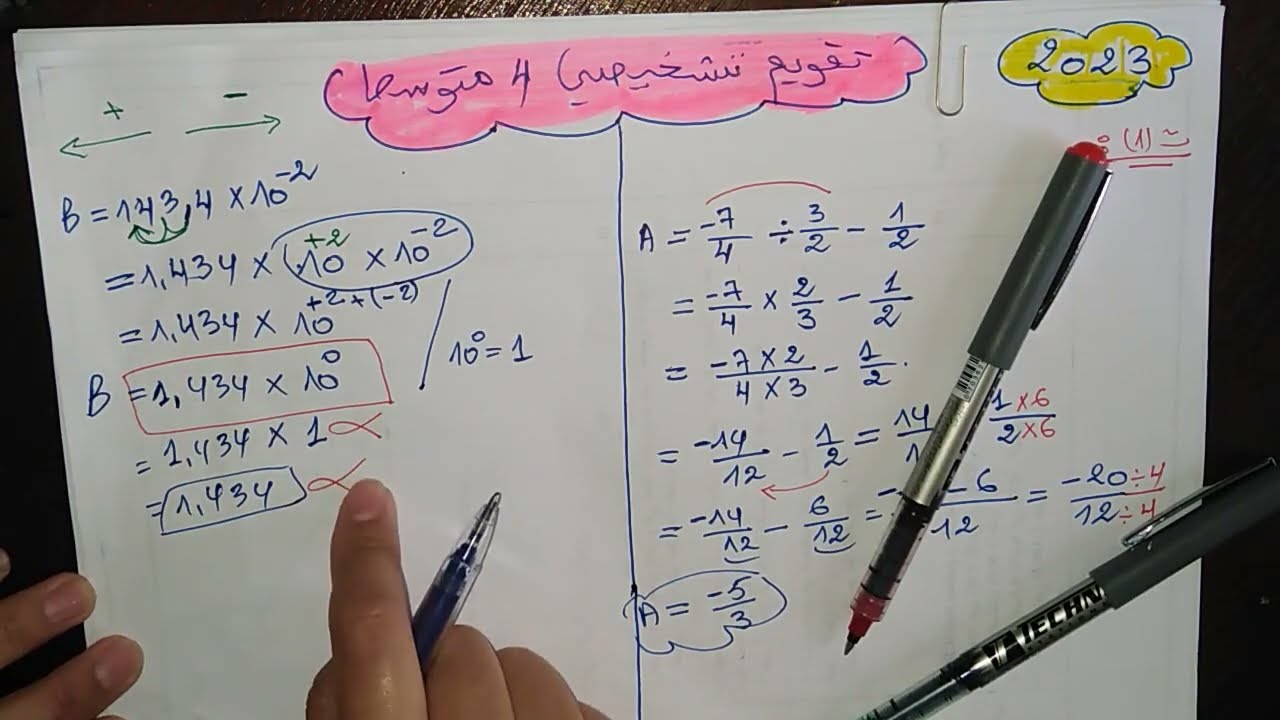 تقويم تشخيصي 4 متوسط
2023
+ -
B = 143,4 × 10⁻²
= 1,434 × 10⁺² × 10⁻²
= 1,434 × 10⁺²⁺⁽⁻²⁾
10⁰ = 1
B = 1,434 × 10⁰
= 1,434 × 1
= 1,434
(1)
A = -7/4 ÷ 3/2 - 1/2
= -7/4 × 2/3 - 1/2
= -7×2/4×3 - 1/2
= -14/12 - 1/2 = 14/1 1×6/2×6
= -14/12 - 6/12 = -6/12 = -20÷4/12÷4
A = -5/3
TECHN